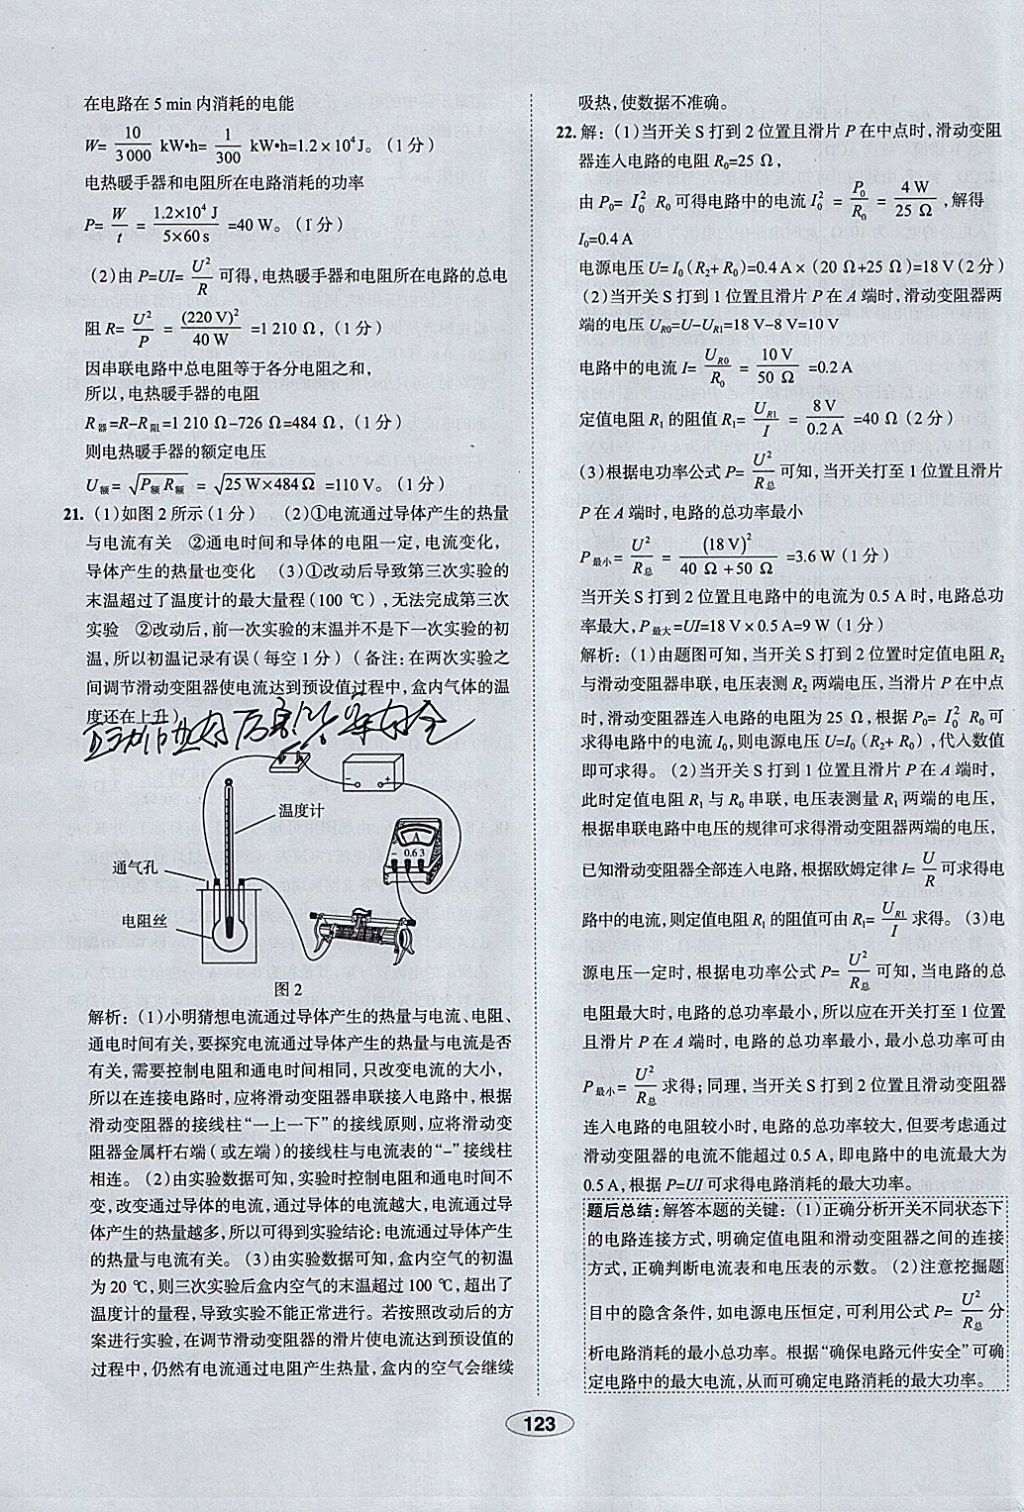 在电路在 5 min 内消耗的电能
W= 10/3 000 kW·h= 1/300 kW·h=1.2×10⁴J。(1 分)
电热暖手器和电阻所在电路消耗的功率
P= W/t = 1.2×10⁴ J/5×60 s =40 W。(1 分)
(2)由 P=UI= U²/R 可得,电热暖手器和电阻所在电路的总电
阻 R= U²/P = (220 V)²/40 W =1 210 Ω,(1 分)
因串联电路中总电阻等于各分电阻之和,
所以,电热暖手器的电阻
R器=R-R阻=1 210 Ω-726 Ω=484 Ω,(1 分)
则电热暖手器的额定电压
U额= √P额R额 = √25 W×484 Ω =110 V。(1 分)
21. (1)如图 2 所示(1 分) (2)①电流通过导体产生的热量
与电流有关 ②通电时间和导体的电阻一定,电流变化,
导体产生的热量也变化 (3)①改动后导致第三次实验的
末温超过了温度计的最大量程(100 ℃),无法完成第三次
实验 ②改动后,前一次实验的末温并不是下一次实验的初
温,所以初温记录有误(每空 1 分)(备注:在两次实验之
间调节滑动变阻器使电流达到预设值过程中,盒内气体的温
度还在上升)
温度计
通气孔
电阻丝
A
- 0.6 3
- +
图 2
解析:(1)小明猜想电流通过导体产生的热量与电流、电阻、
通电时间有关,要探究电流通过导体产生的热量与电流是否
有关,需要控制电阻和通电时间相同,只改变电流的大小,
所以在连接电路时,应将滑动变阻器串联接入电路中,根据
滑动变阻器的接线柱“一上一下”的接线原则,应将滑动变
阻器金属杆右端(或左端)的接线柱与电流表的“-”接线柱
相连。(2)由实验数据可知,实验时控制电阻和通电时间不
变,改变通过导体的电流,通过导体的电流越大,电流通过导
体产生的热量越多,所以可得到实验结论:电流通过导体产生
的热量与电流有关。(3)由实验数据可知,盒内空气的初温
为 20 ℃,则三次实验后盒内空气的末温超过 100 ℃,超出了
温度计的量程,导致实验不能正常进行。若按照改动后的方
案进行实验,在调节滑动变阻器的滑片使电流达到预设值的
过程中,仍然有电流通过电阻产生热量,盒内的空气会继续
吸热,使数据不准确。
22. 解:(1)当开关 S 打到 2 位置且滑片 P 在中点时,滑动变阻
器连入电路的电阻 R₀=25 Ω,
由 P₀= I₀² R₀ 可得电路中的电流 I₀² = P₀/R₀ = 4 W/25 Ω ,解得
I₀=0.4 A
电源电压 U= I₀(R₂+ R₀)=0.4 A×(20 Ω+25 Ω)=18 V(2 分)
(2)当开关 S 打到 1 位置且滑片 P 在 A 端时,滑动变阻器两
端的电压 UR0=U-UR1=18 V-8 V=10 V
电路中的电流 I= UR0/R₀ = 10 V/50 Ω =0.2 A
定值电阻 R₁ 的阻值 R₁= UR1/I = 8 V/0.2 A =40 Ω(2 分)
(3)根据电功率公式 P= U²/R总 可知,当开关打至 1 位置且滑片
P 在 A 端时,电路的总功率最小
P最小= U²/R总 = (18 V)²/40 Ω+50 Ω =3.6 W(1 分)
当开关 S 打到 2 位置且电路中的电流为 0.5 A 时,电路总功
率最大,P最大=UI=18 V×0.5 A=9 W(1 分)
解析:(1)由题图可知,当开关 S 打到 2 位置时定值电阻 R₂
与滑动变阻器串联,电压表测 R₂ 两端电压,当滑片 P 在中点
时,滑动变阻器连入电路的电阻为 25 Ω,根据 P₀= I₀² R₀ 可
求得电路中的电流 I₀,则电源电压 U=I₀(R₂+ R₀),代入数值
即可求得。(2)当开关 S 打到 1 位置且滑片 P 在 A 端时,
此时定值电阻 R₁ 与 R₀ 串联,电压表测量 R₁ 两端的电压,
根据串联电路中电压的规律可求得滑动变阻器两端的电压,
已知滑动变阻器全部连入电路,根据欧姆定律 I= U/R 可求得电
路中的电流,则定值电阻 R₁ 的阻值可由 R₁= UR1/I 求得。(3)电
源电压一定时,根据电功率公式 P= U²/R总 可知,当电路的总
电阻最大时,电路的总功率最小,所以应在开关打至 1 位置
且滑片 P 在 A 端时,电路的总功率最小,最小总功率可由
P最小= U²/R总 求得;同理,当开关 S 打到 2 位置且滑动变阻器
连入电路的电阻较小时,电路的总功率较大,但要考虑通过
滑动变阻器的电流不能超过 0.5 A,即电路中的电流最大为
0.5 A,根据 P=UI 可求得电路消耗的最大功率。
题后总结:解答本题的关键:(1)正确分析开关不同状态下
的电路连接方式,明确定值电阻和滑动变阻器之间的连接
方式,正确判断电流表和电压表的示数。(2)注意挖掘题
目中的隐含条件,如电源电压恒定,可利用公式 P= U²/R总 分
析电路消耗的最小总功率。根据“确保电路元件安全”可确
定电路中的最大电流,从而可确定电路消耗的最大功率。
123